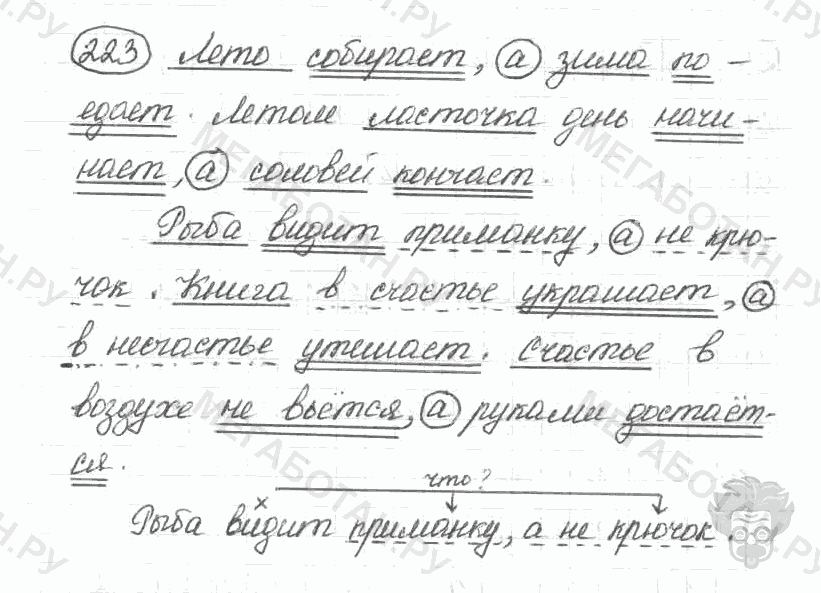 223 Лето собирает, а зима по-
едает. Летом ласточка день начи-
нает, а соловей кончает.
Рыба видит приманку, а не крю-
чок. Книга в счастье украшает, а
в несчастье утешает. Счастье в
воздухе не вьётся, а руками достаёт-
ся.
что?
х
Рыба видит приманку, а не крючок.
МЕГАБОТАН.РУ